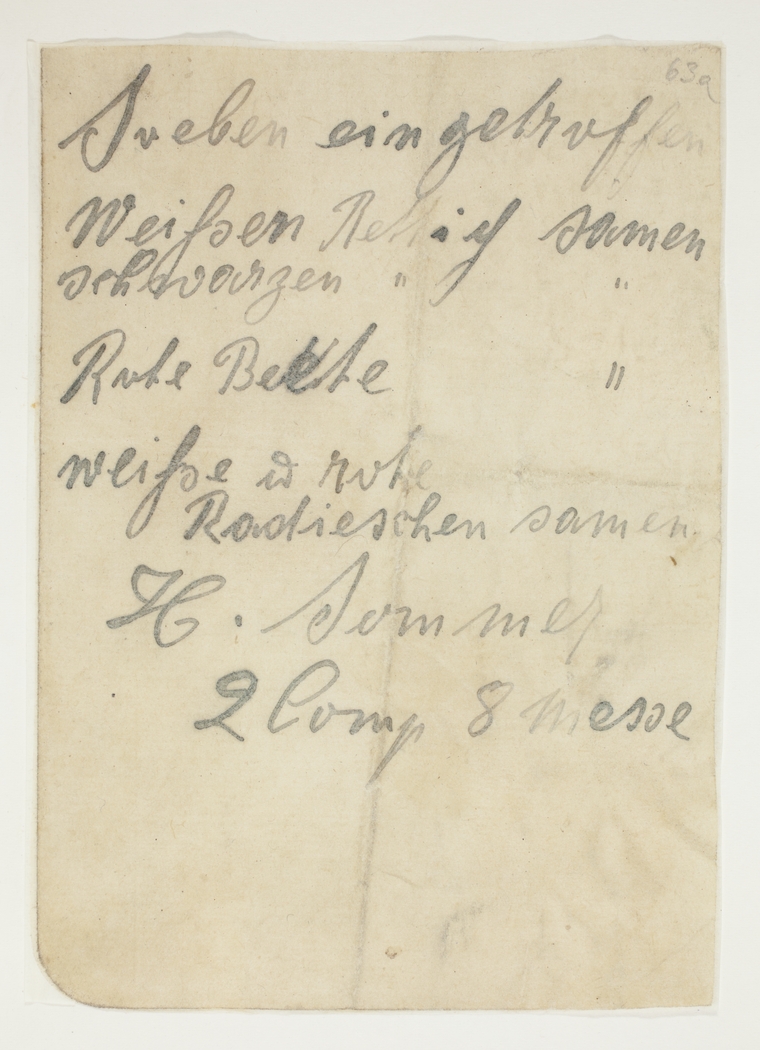 63a
Soeben eingetroffen
Weißen Rettich samen
schwarzen " "
Rote Beete "
weiße u rote
Radieschen samen
H. Sommer
2 Comp 8 Messe